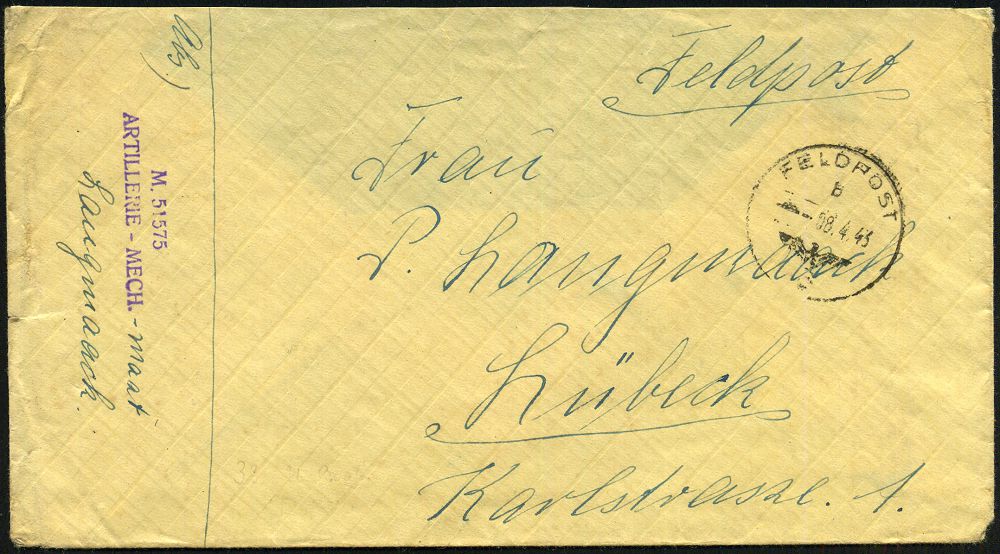 Feldpost
Frau
P. Langmaack
Lübeck
Karlstrasze. 1.
FELDPOST
B
08.4.43
Ab)
M. 51575
ARTILLERIE - MECH. - maat
Langmaack.